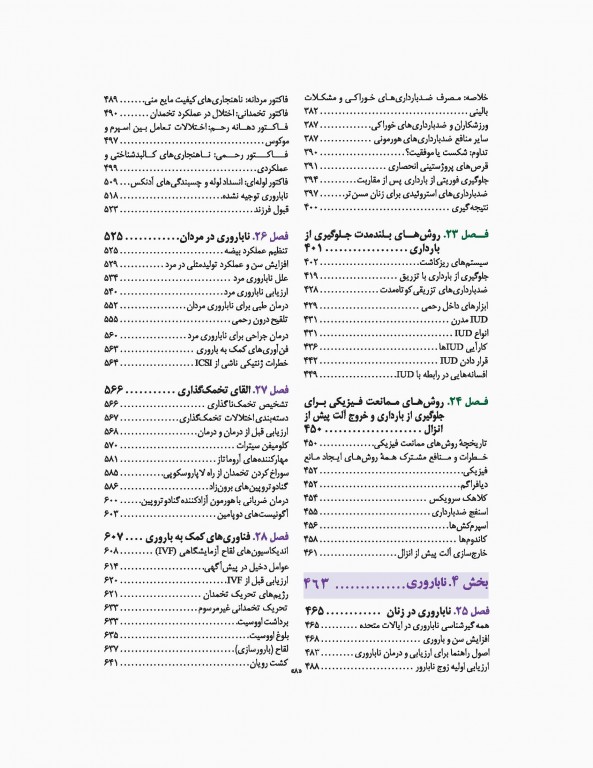 خلاصه: مصرف ضدبارداری‌های خوراکی و مشکلات
بالینی ........ ۳۸۲
ورزشکاران و ضدبارداری‌های خوراکی ........ ۳۸۷
سایر منافع ضدبارداری‌های هورمونی ........ ۳۸۷
تداوم: شکست یا موفقیت؟ ........ ۳۹۰
قرص‌های پروژستینی انحصاری ........ ۳۹۱
جلوگیری فوریتی از بارداری پس از مقاربت ........ ۳۹۴
ضدبارداری‌های استروئیدی برای زنان مسن‌تر ........ ۳۹۷
نتیجه‌گیری ........ ۴۰۰
فـصل ۲۳. روش‌هـای بـلندمدت جـلوگیری از
بارداری ........ ۴۰۱
سیستم‌های ریزکاشت ........ ۴۰۲
جلوگیری از بارداری با تزریق ........ ۴۱۹
ضدبارداری‌های تزریقی کوتاه‌مدت ........ ۴۲۸
ابزارهای داخل رحمی ........ ۴۲۹
IUD مدرن ........ ۴۳۱
انواع IUD ........ ۴۳۱
کارآیی IUDها ........ ۴۳۶
قرار دادن IUD ........ ۴۴۲
افسانه‌هایی در رابطه با IUD ........ ۴۴۹
فـصل ۲۴. روش‌های مـمانعت فـیزیکی بـرای
جلوگیری از بارداری و خروج آلت پیش از
انزال ........ ۴۵۰
تاریخچهٔ روش‌های ممانعت فیزیکی ........ ۴۵۰
خطرات و منافع مشترک همهٔ روش‌های ایجاد مانع
فیزیکی ........ ۴۵۲
دیافراگم ........ ۴۵۲
کلاهک سرویکس ........ ۴۵۴
اسفنج ضدبارداری ........ ۴۵۵
اسپرم‌کش‌ها ........ ۴۵۶
کاندوم‌ها ........ ۴۵۸
خارج‌سازی آلت پیش از انزال ........ ۴۶۱
بخش ۴. ناباروری ........ ۴۶۳
فصل ۲۵. ناباروری در زنان ........ ۴۶۵
همه گیرشناسی ناباروری در ایالات متحده ........ ۴۶۵
افزایش سن و باروری ........ ۴۶۸
اصول راهنما برای ارزیابی و درمان ناباروری ........ ۴۸۳
ارزیابی اولیه زوج نابارور ........ ۴۸۸
فاکتور مردانه: ناهنجاری‌های کیفیت مایع منی ........ ۴۸۹
فاکتور تخمدانی: اختلال در عملکرد تخمدان ........ ۴۹۰
فـاکـتور دهـانه رحـم: اختلالات تعامل بین اسپرم و
موکوس ........ ۴۹۷
فـاکـتور رحـمی: نـاهنجاری‌های کـالبدشناختی و
عملکردی ........ ۴۹۹
فاکتور لوله‌ای: انسداد لوله و چسبندگی‌های آدنکس ........ ۵۰۹
ناباروری توجیه نشده ........ ۵۱۸
قبول فرزند ........ ۵۲۳
فصل ۲۶. ناباروری در مردان ........ ۵۲۵
تنظیم عملکرد بیضه ........ ۵۲۵
افزایش سن و عملکرد تولیدمثلی در مرد ........ ۵۲۹
علل ناباروری مرد ........ ۵۳۴
ارزیابی ناباروری مرد ........ ۵۴۰
درمان طبی برای ناباروری مردان ........ ۵۵۲
تلقیح درون رحمی ........ ۵۵۵
درمان جراحی برای ناباروری مرد ........ ۵۶۰
فن‌آوری‌های کمک به باروری ........ ۵۶۳
خطرات ژنتیکی ناشی از ICSI ........ ۵۶۴
فصل ۲۷. القای تخمک‌گذاری ........ ۵۶۶
تشخیص تخمک‌ناگذاری ........ ۵۶۶
دسته‌بندی اختلالات تخمک‌گذاری ........ ۵۶۷
ارزیابی قبل از درمان و درمان ........ ۵۶۸
کلومیفن سیترات ........ ۵۷۰
مهارکننده‌های آروماتاز ........ ۵۸۱
سوراخ کردن تخمدان از راه لاپاروسکوپی ........ ۵۸۵
گنادوتروپین‌های برون‌زاد ........ ۵۸۶
درمان ضربانی با هورمون آزادکننده گنادوتروپین ........ ۶۰۰
آگونیست‌های دوپامین ........ ۶۰۳
فصل ۲۸. فناوری‌های کمک به باروری ........ ۶۰۷
اندیکاسیون‌های لقاح آزمایشگاهی (IVF) ........ ۶۰۸
عوامل دخیل در پیش‌آگهی ........ ۶۱۴
ارزیابی قبل از IVF ........ ۶۲۰
رژیم‌های تحریک تخمدان ........ ۶۲۱
تحریک تخمدانی غیرمرسوم ........ ۶۳۳
برداشت اووسیت ........ ۶۳۳
بلوغ اووسیت ........ ۶۳۵
لقاح (بارورسازی) ........ ۶۳۷
کشت رویان ........ ۶۴۱
«۸»